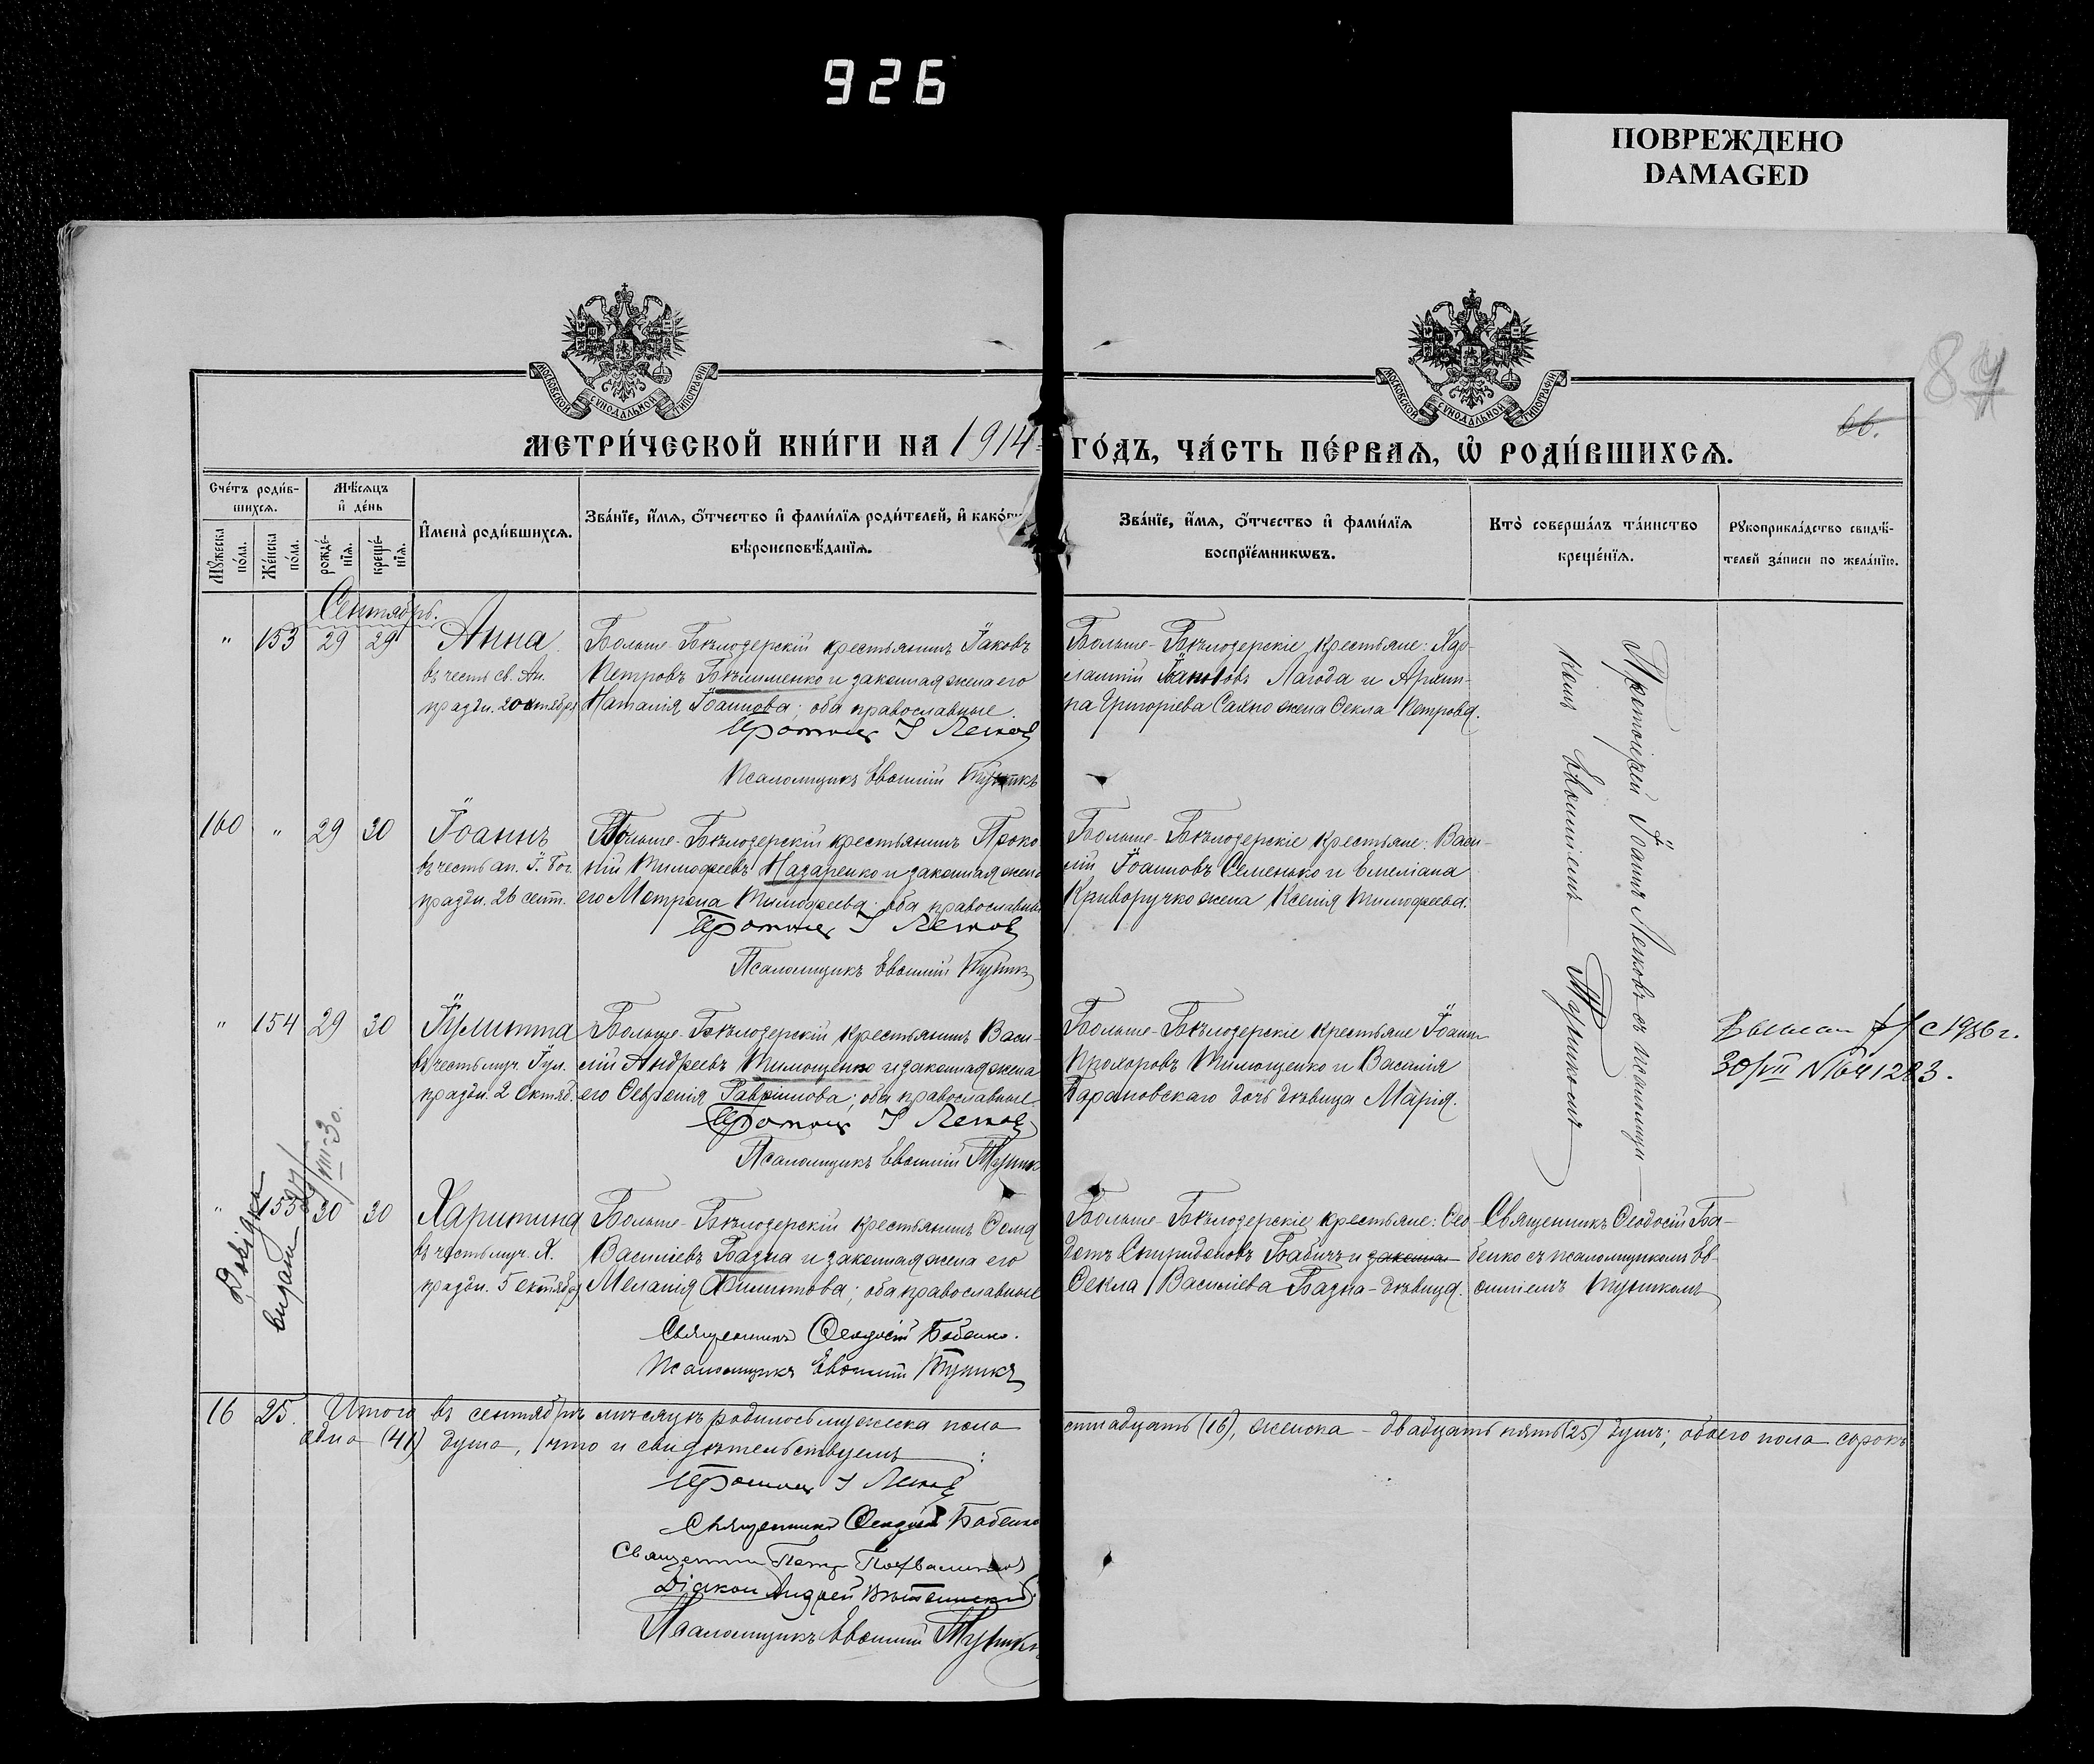 926
ПОВРЕЖДЕНО
DAMAGED
МОСКОВСКОЙ СѴНОДАЛЬНОЙ ТИПОГРАФІИ
МОСКОВСКОЙ СѴНОДАЛЬНОЙ ТИПОГРАФІИ
87
66.
МЕТРИ́ЧЕСКОЙ КНИ́ГИ НА 1914
ГО́ДЪ, ЧА́СТЬ ПЕ́РВАѦ, Ѡ҆ РОДИ́ВШИХСѦ.
Сче́тъ роди́в-
шихсѧ.
Мѣ́сѧцъ
и҆ де́нь
Мꙋ́жеска
по́ла.
Же́нска
по́ла.
рожде́-
нїѧ.
креще́-
нїѧ.
И҆мена̀ роди́вшихсѧ.
Зва́нїе, и҆́мѧ, ѻ҆́тчество и҆ фами́лїѧ роди́телей, и҆ како́гѡ
вѣроисповѣ́данїѧ.
Зва́нїе, и҆́мѧ, ѻ҆́тчество и҆ фами́лїѧ
воспрїе́мникѡвъ.
Кто̀ соверша́лъ та́инство
креще́нїѧ.
Рꙋкоприкла́дство свидѣ́-
телей за́писи по жела́нїю.
Сентябрь.
" 153 29 29 Анна
въ честь св. Ан.
праздн. 2 октября
Больше-Бѣлозерскій крестьянинъ Іаковъ
Петровъ Бѣлименко и законная жена его
Наталія Іоаннова; оба православные.
Протоіер І Лепков
Псаломщикъ Евѳимій Тупикъ
Больше-Бѣлозерскіе крестьяне:
Лагода и
на Григоріева Саенко жена Ѳекла Петрова.
Протоіерей Іоаннъ Лепковъ съ псаломщи-
комъ Евѳиміемъ Тупикомъ
160 " 29 30 Іоаннъ
въ честь ап. І. Бог.
праздн. 26 сент.
Больше-Бѣлозерскій крестьянинъ Проко
пій Тимоѳеевъ Назаренко и законная жена
его Матрона Тимоѳеева; оба православные
Протоіер І Лепков
Псаломщикъ Евѳимій Тупикъ
Больше-Бѣлозерскіе крестьяне: Васи-
лій Іоанновъ Семенько и Емеліана
Криворучко жена Ксенія Тимоѳеева.
" 154 29 30 Іулитта
въ честь муч. Іул.
праздн. 2 октяб.
Больше-Бѣлозерскій крестьянинъ Васи-
лій Андреевъ Тимощенко и законная жена
его Ѳевронія Гавріилова; оба православные
Протоіер І Лепков
Псаломщикъ Евѳимій Тупик
Больше-Бѣлозерскіе крестьяне Іоаннъ
Прохоровъ Тимощенко и Василія
Барановскаго дочь дѣвица Марія.
с 1986 г.
30/VII № 641283.
Довідка
видана
/VIII-30.
" 155 30 30 Харитина
въ честь муч. Х.
праздн. 5 октября
Больше-Бѣлозерскій крестьянинъ Ѳома
Василіевъ Базна и законная жена его
Меланія Филиппова; оба православные
Священникъ Ѳеодосій Бабенко.
Псаломщикъ Евѳимій Тупикъ
Больше-Бѣлозерскіе крестьяне: Ѳео
дотъ Спиридоновъ Бабичъ и законна
Ѳекла Василіева Базна - дѣвица.
Священникъ Ѳеодосій Ба-
бенко съ псаломщикомъ Ев-
ѳиміемъ Тупикомъ
16 25. Итого въ сентябрѣ мѣсяцѣ родилось мужеска пола
стнадцать (16), женска - двадцать пять (25) душъ; обоего пола сорокъ
одна (41) душа, что и свидѣтельствуемъ:
Протоіер І Лепков
Священникъ Ѳеодосій Бабенко
Священник Петр
Діакон Андрей
Псаломщикъ Евѳимій Тупикъ